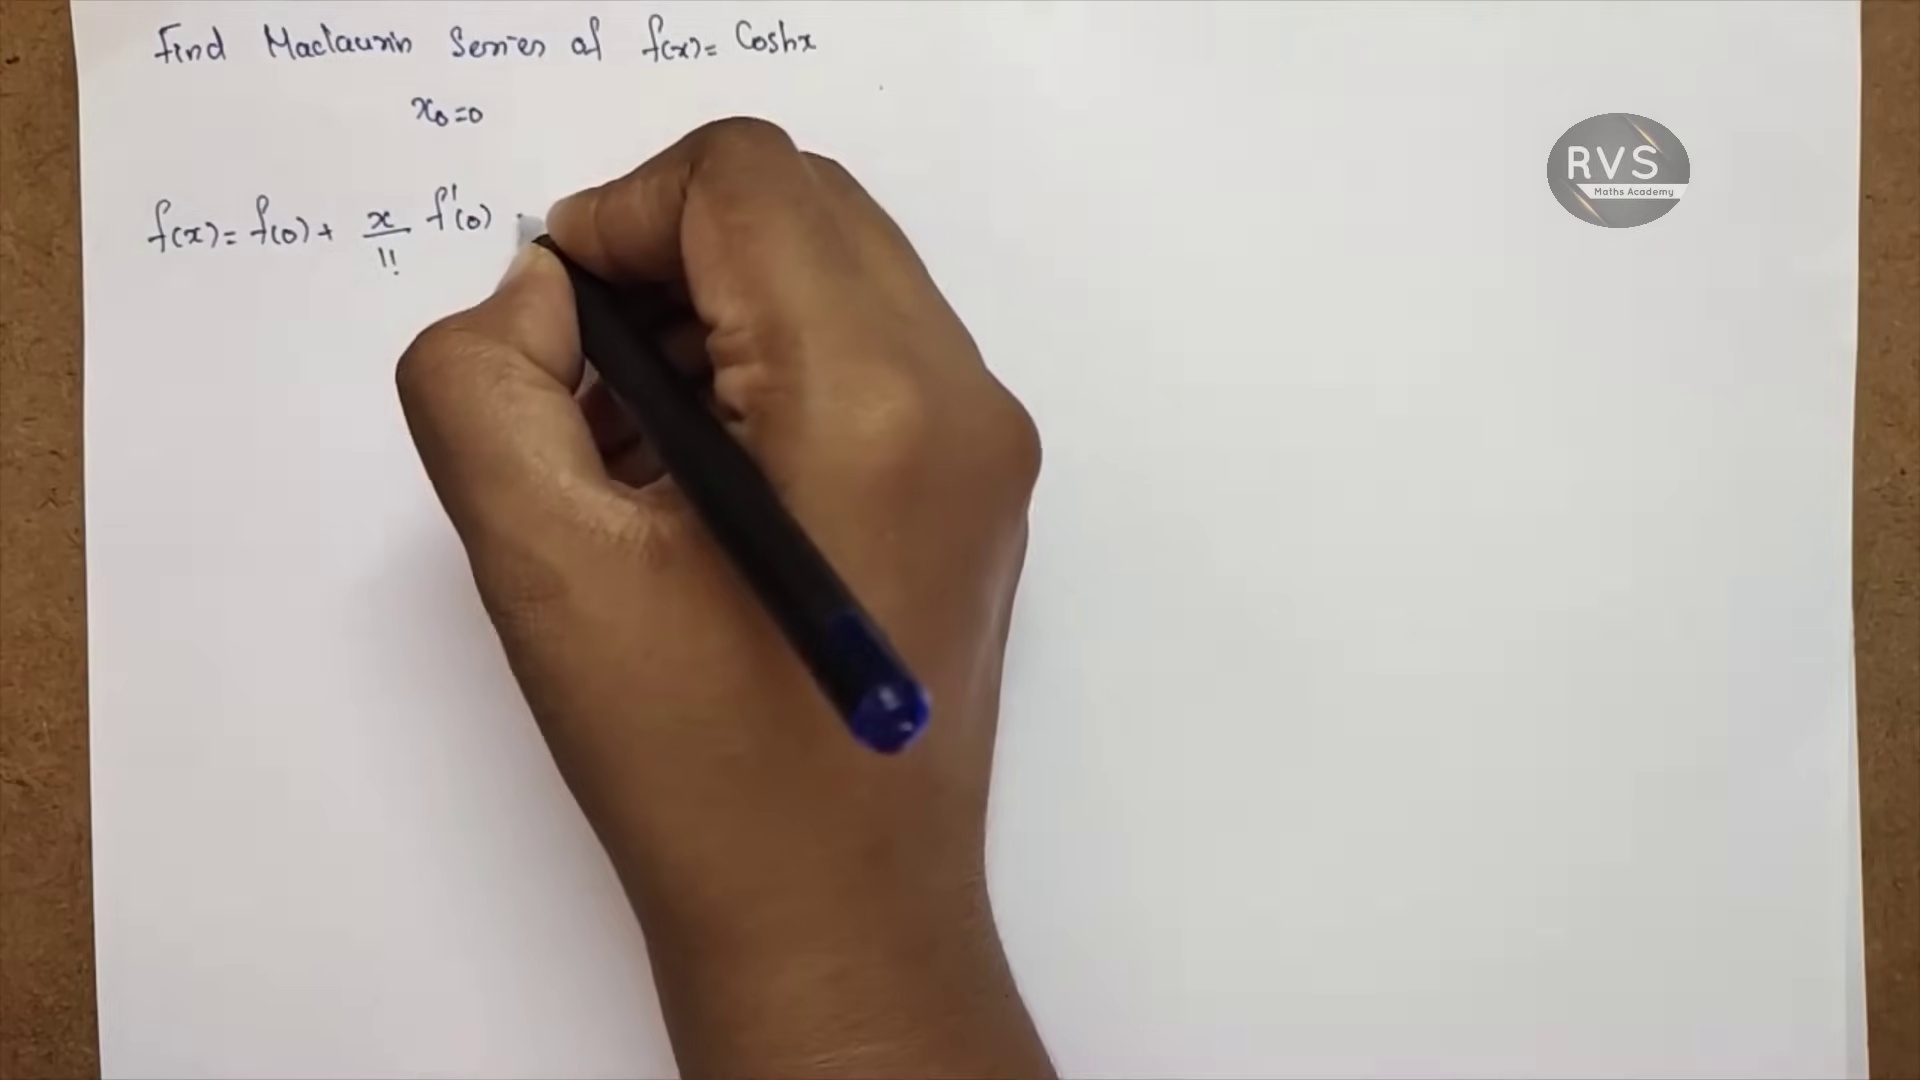 Find Maclaurin Series of f(x) = Coshx
x₀=0
f(x) = f(0) + x/1! f'(0)
RVS
Maths Academy